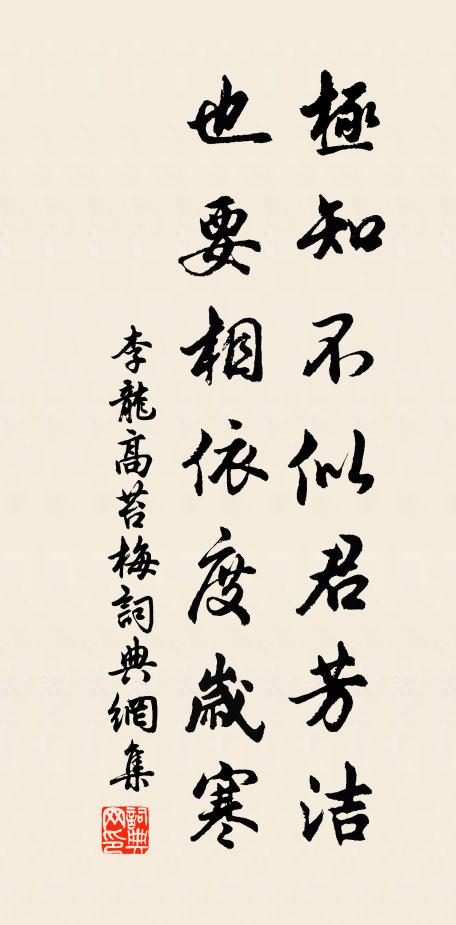 極知不似君芳洁
也要相依度歲寒
李龍高苔梅詞典網集
詞典
网印